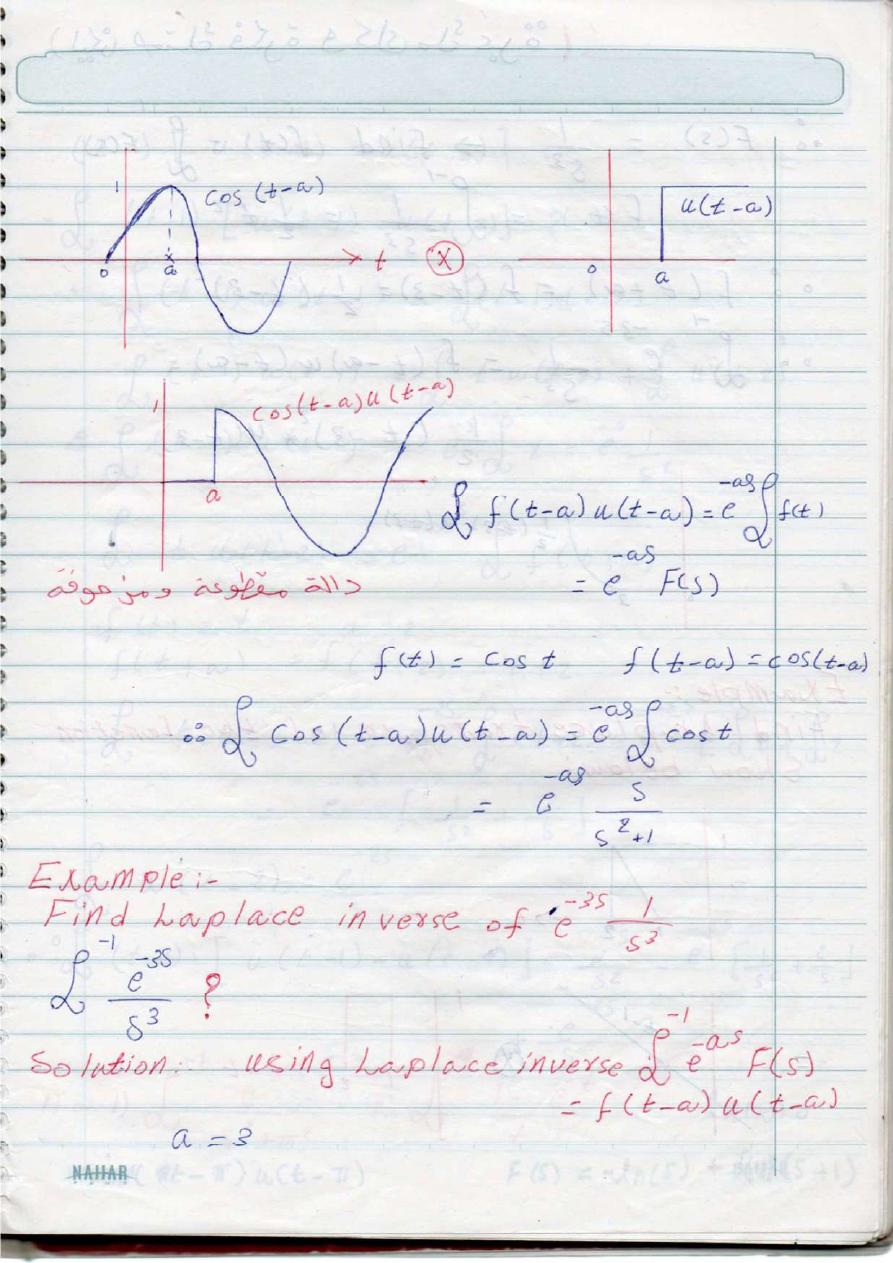 1 cos (t-a) u(t-a)
0 a t x 0 a
1 cos(t-a)u(t-a)
a
ℒ f(t-a) u(t-a) = e^-as ℒ f(t)
= e^-as F(s)
دالة مقطوعة ومزحوفة
f(t) = cos t f(t-a) = cos(t-a)
∴ ℒ cos (t-a) u(t-a) = e^-as ℒ cost
= e^-as s/(s^2+1)
Example:-
Find Laplace inverse of e^-3s 1/s^3
ℒ^-1 e^-3s/s^3 ?
Solution:- using Laplace inverse ℒ^-1 e^-as F(s)
= f(t-a) u(t-a)
a = 3
NAHAR